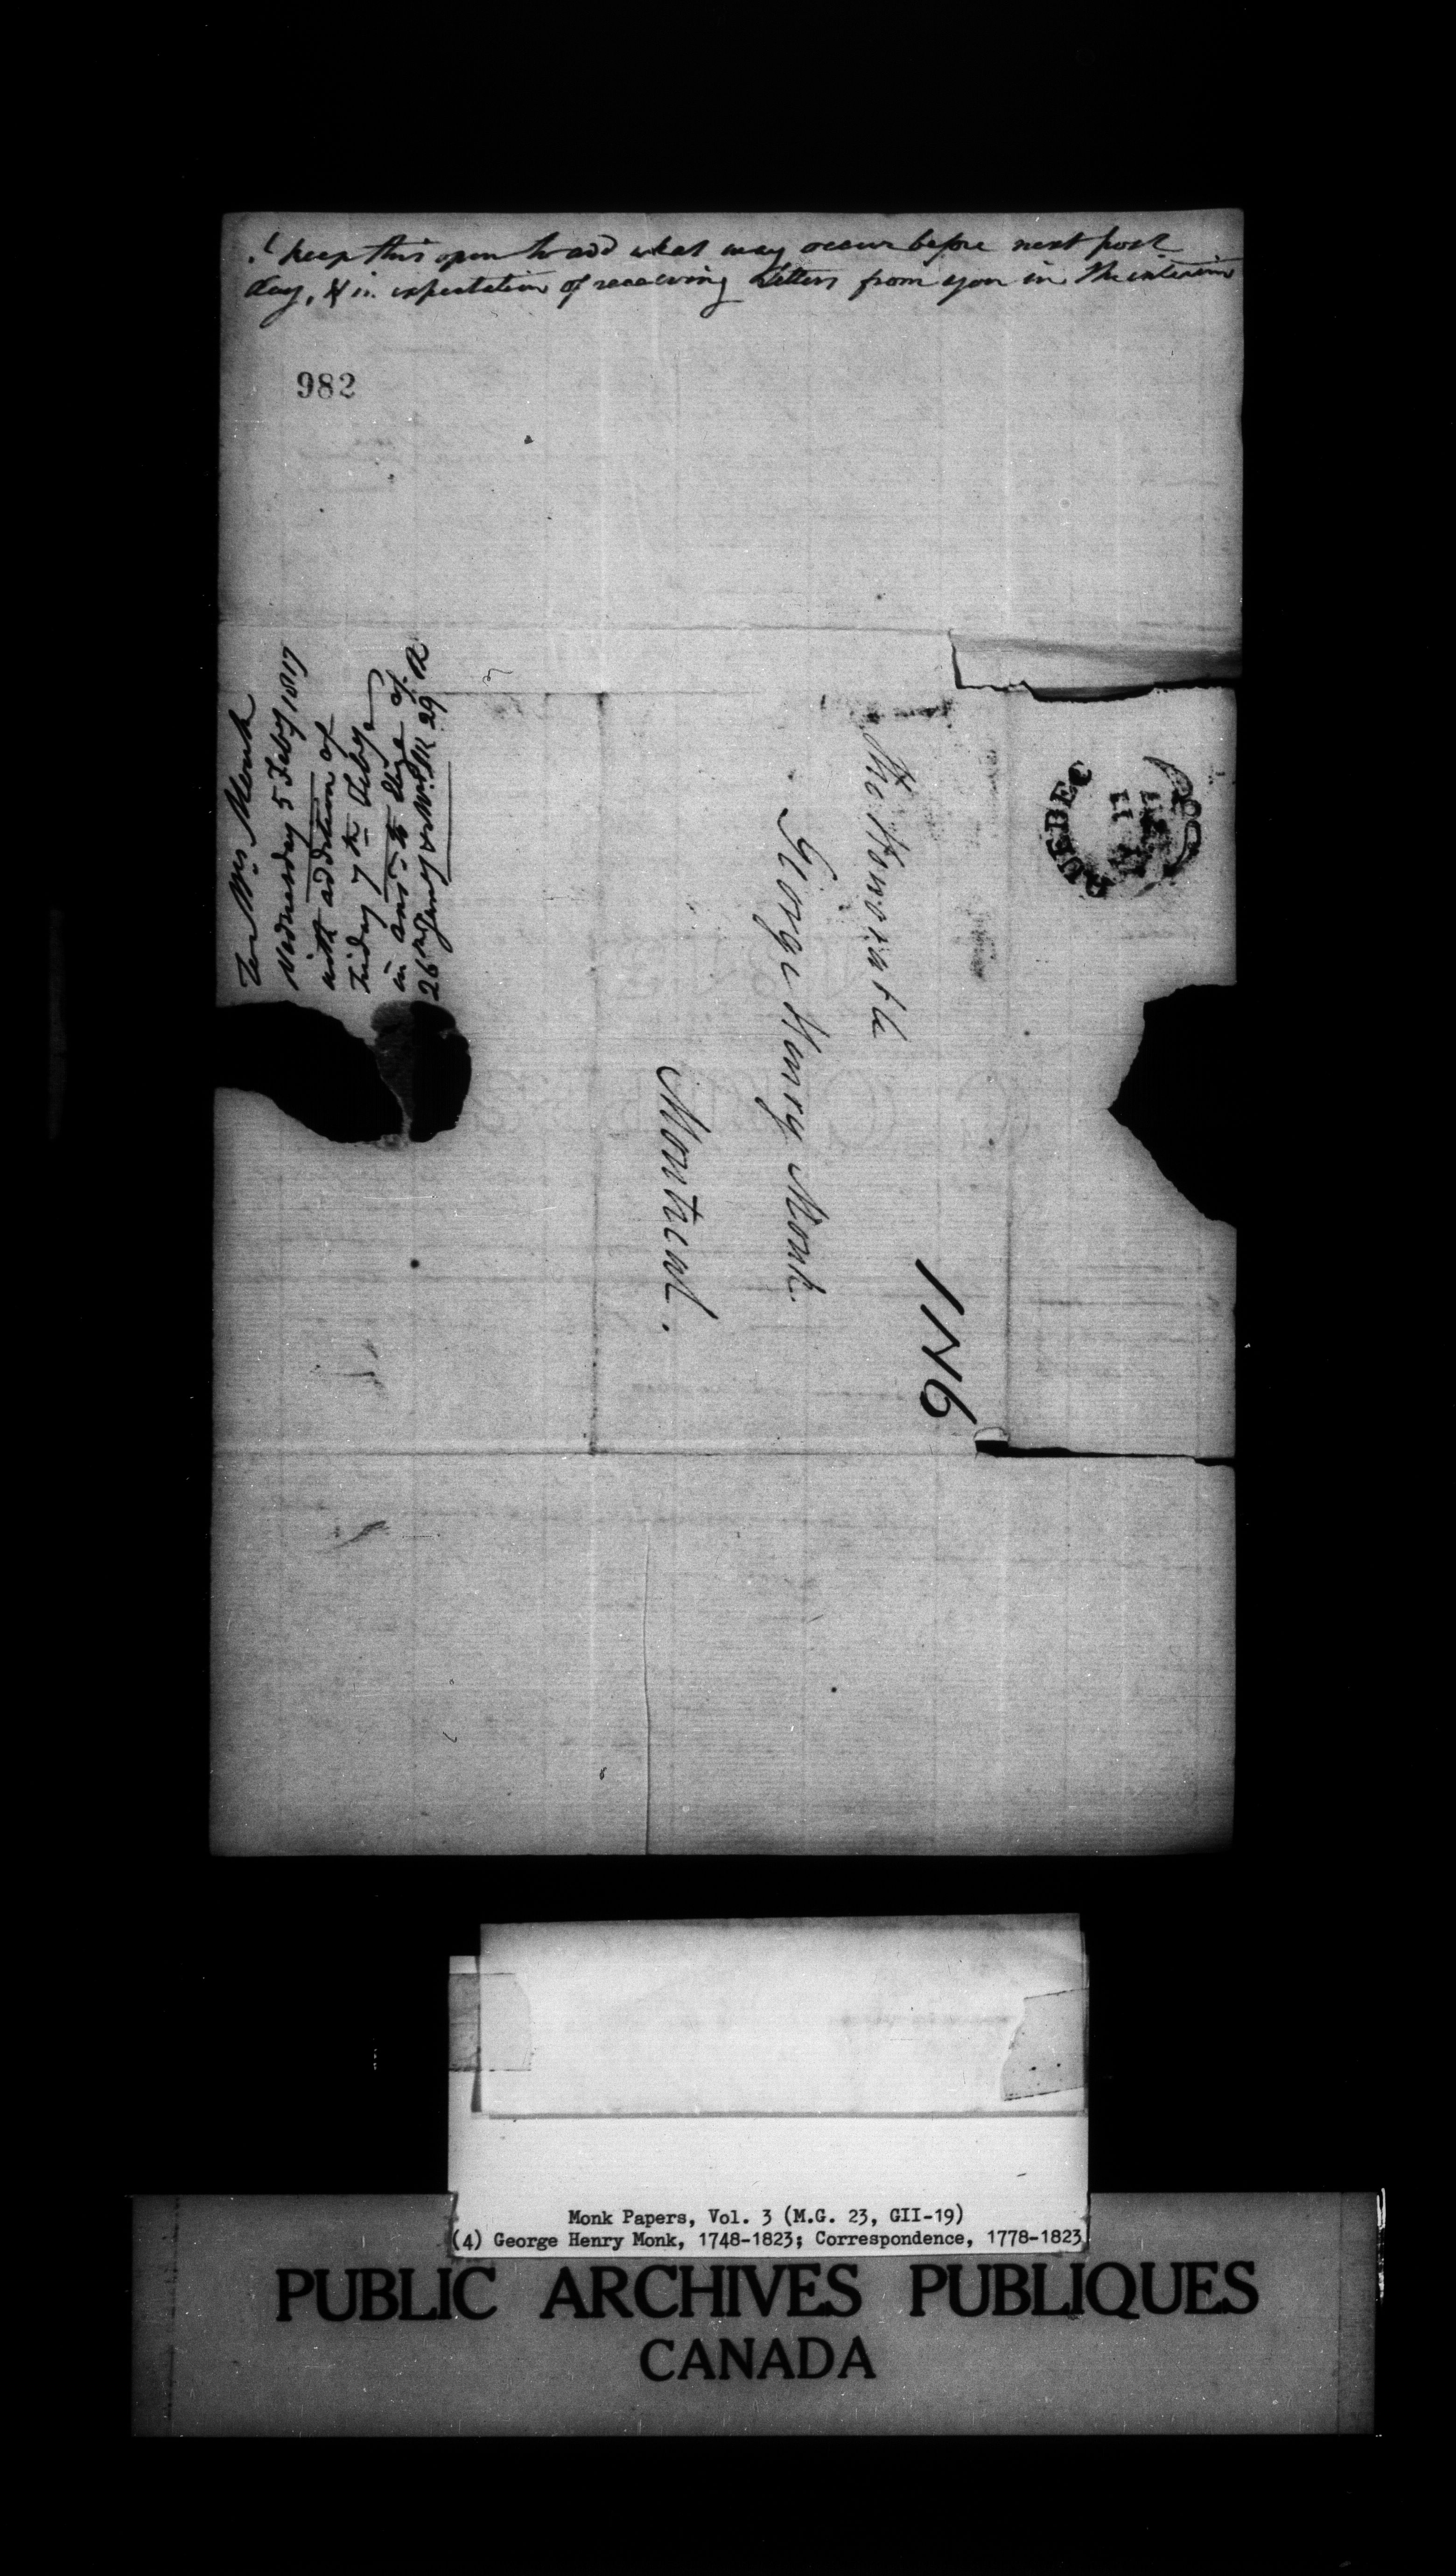 I keep this open to add what may occur before next post
day, & in expectation of receiving Letters from you in the interim
982
Mrs Monk
Wednesday 5 Feby 1817
with addition of
Friday 7th Feby
in ansr to of
26th Janry & 29
QUEBEC
The Honorable
George Henry Monk
Montreal.
1N6
Monk Papers, Vol. 3 (M.G. 23, GII-19)
(4) George Henry Monk, 1748-1823; Correspondence, 1778-1823
PUBLIC ARCHIVES PUBLIQUES
CANADA